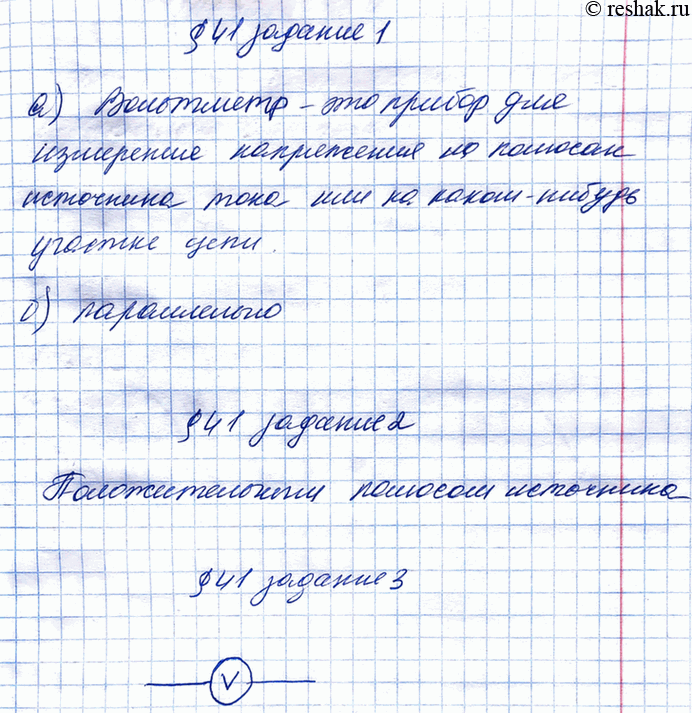 © reshak.ru
§41 задание 1
а) Вольтметр – это прибор для
измерение напряжения на полюсах
источника тока или на каком-нибудь
участке цепи.
б) параллельно
§41 задание 2
Положительным полюсом источника
§41 задание 3
V